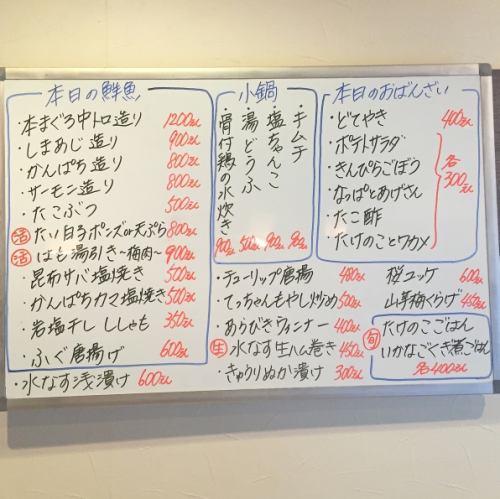 本日の鮮魚
・本まぐろ中トロ造り 1200えん
・しまあじ造り 900えん
・かんぱち造り 800えん
・サーモン造り 800えん
・たこぶつ 500えん
活 たい白子ポンズor天ぷら 800えん
活 はも湯引き～梅肉～ 900えん
・昆布サバ塩焼き 500えん
・かんぱちカマ塩焼き 500えん
・岩塩干し ししゃも 350えん
・ふぐ唐揚げ 600えん
・水なす浅漬け 600えん
小鍋
・キムチ 900えん
・塩ちゃんこ 900えん
・湯どうふ 500えん
・骨付鶏の水炊き 900えん
本日のおばんざい
・どてやき 400えん
・ポテトサラダ
・きんぴらごぼう
・なっぱとあげさん
・たこ酢
・たけのことワカメ
各300えん
・チューリップ唐揚 480えん
・てっちゃんもやし炒め 500えん
・あらびきウィンナー 400えん
生 水なす生ハム巻き 450えん
・きゅうりぬか漬け 300えん
桜ユッケ 600えん
山芋梅くらげ 450えん
旬 たけのこごはん
いかなごくぎ煮ごはん
各400えん